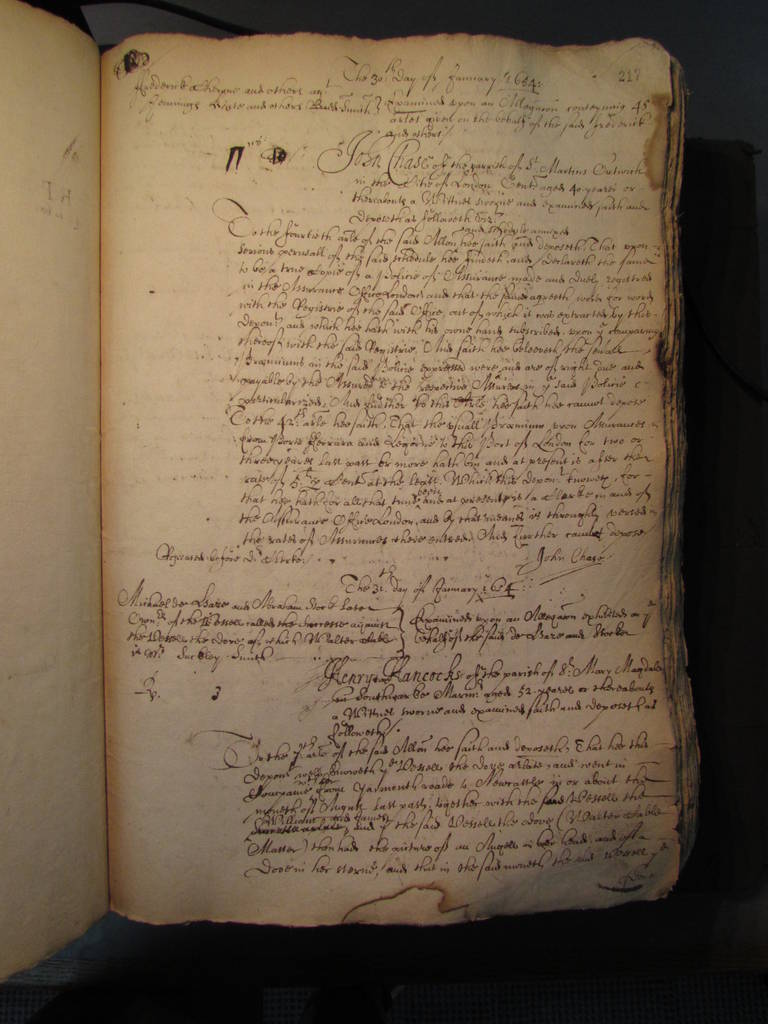 The 30th day of January 1654. 217
Frederick and others agt
and others Smith. Examined upon an Allegacon conteyning 45
arles given on the behalfe of the said Frederick
and others
John Chase of the parrish of St Martins Outwich
in the Citie of London Gent aged 40 yeares or
thereabouts a Wittnes sworne and examined saith and
deposeth as followeth vizt
and schedule annexed
To the fourtieth arle of the said Allon hee saith and deposeth That upon
serious perusall of the said schedule hee findeth and declareth the same
to be a true Copie of a Policie of Assurance made and duely registred
in the Assurance Office London and that the same agreeth word for word
with the Registrie of the said Office, out of which it was extracted by this
depont, and which hee hath with his owne hand subscribed upon ye comparing
thereof with the said Registrie, And saith hee beleeveth the severall
Premiums in the said Policie expressed were and are of right due and
payable by the Assured to the respective Assurers in ye said Policie
particularized, And further to this Arle hee saith hee cannot depose
To the 42th arle hee saith, That the usuall Premium upon Assurances
from and Legorne to this Port of London for two or
three yeares last past or more hath bin and at present is after the
rate of 5 li per Cent at the least. Which this depont knoweth for
that hee hath for all that time beene and at present is a Clarke in and of
the Assurance Office London, and by that meanes is throughly versed in
the rates of Assurances there entred. And further cannot depose
Repeated before Dr Clerke John Chase
The 31th day of January 1654
Michael de Haze and Abraham Stocker late
Owners of the Vessell called the against
the Vessell the Dove of which Walter
is Mr. Suckley Smith
Examined upon an Allegacon exhibited on ye
behalfe of the said de Haze and Stocker
Rp. 3
Henry Hancocks of the parish of St Mary Magdalen
in Southwarke Marinr aged 52 yeares or thereabouts
a Wittnes sworne and examined saith and deposeth as
followeth
To the arle of the said Allon hee saith and deposeth, That hee this
depont well knoweth ye Vessell the Dove arlate, and went in
from Yarmouth roade to Newcastle in or about the
moneth of August last past, together with the said Vessell the
William and James
and ye the said Vessell the Dove (Walter
Master) then had the picture of an Angell in her head, and of a
Dove in her sterne, and that in the said moneth the said Vessell ye
Dove